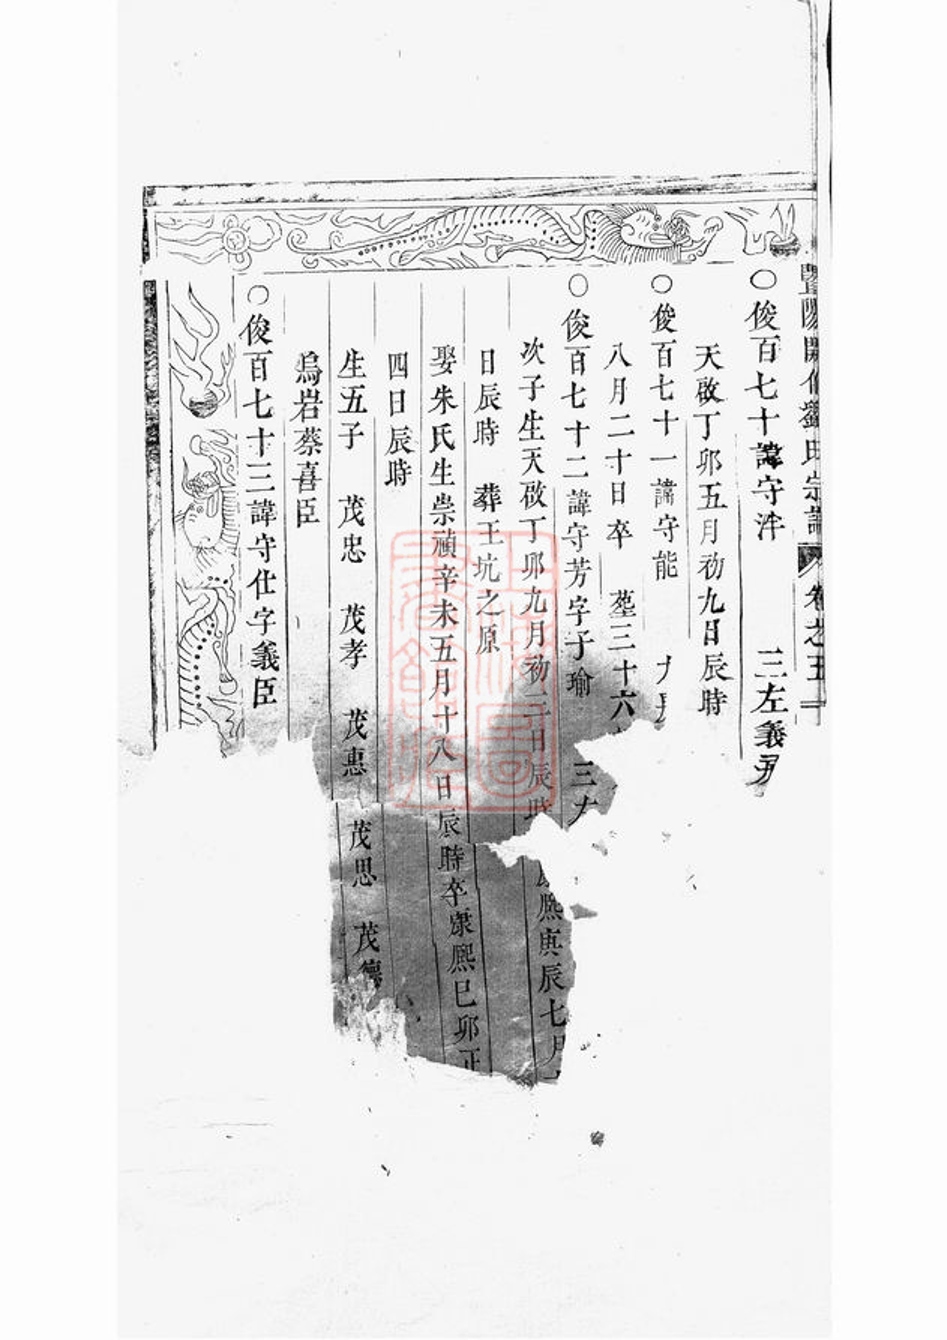 暨陽開化劉氏宗譜 卷之五
〇俊百七十諱守泮 三左義
天啟丁卯五月初九日辰時
〇俊百七十一諱守能
八月二十日卒 塟三十六
〇俊百七十二諱守芳字子瑜 三左
次子生天啟丁卯九月初二日辰時 康熙庚辰七月
日辰時 葬王坑之原
娶朱氏生崇禎辛未五月十八日辰時卒康熙巳卯正
四日辰時
生五子 茂忠 茂孝 茂惠 茂思 茂德
烏岩蔡喜臣
〇俊百七十三諱守仕字義臣